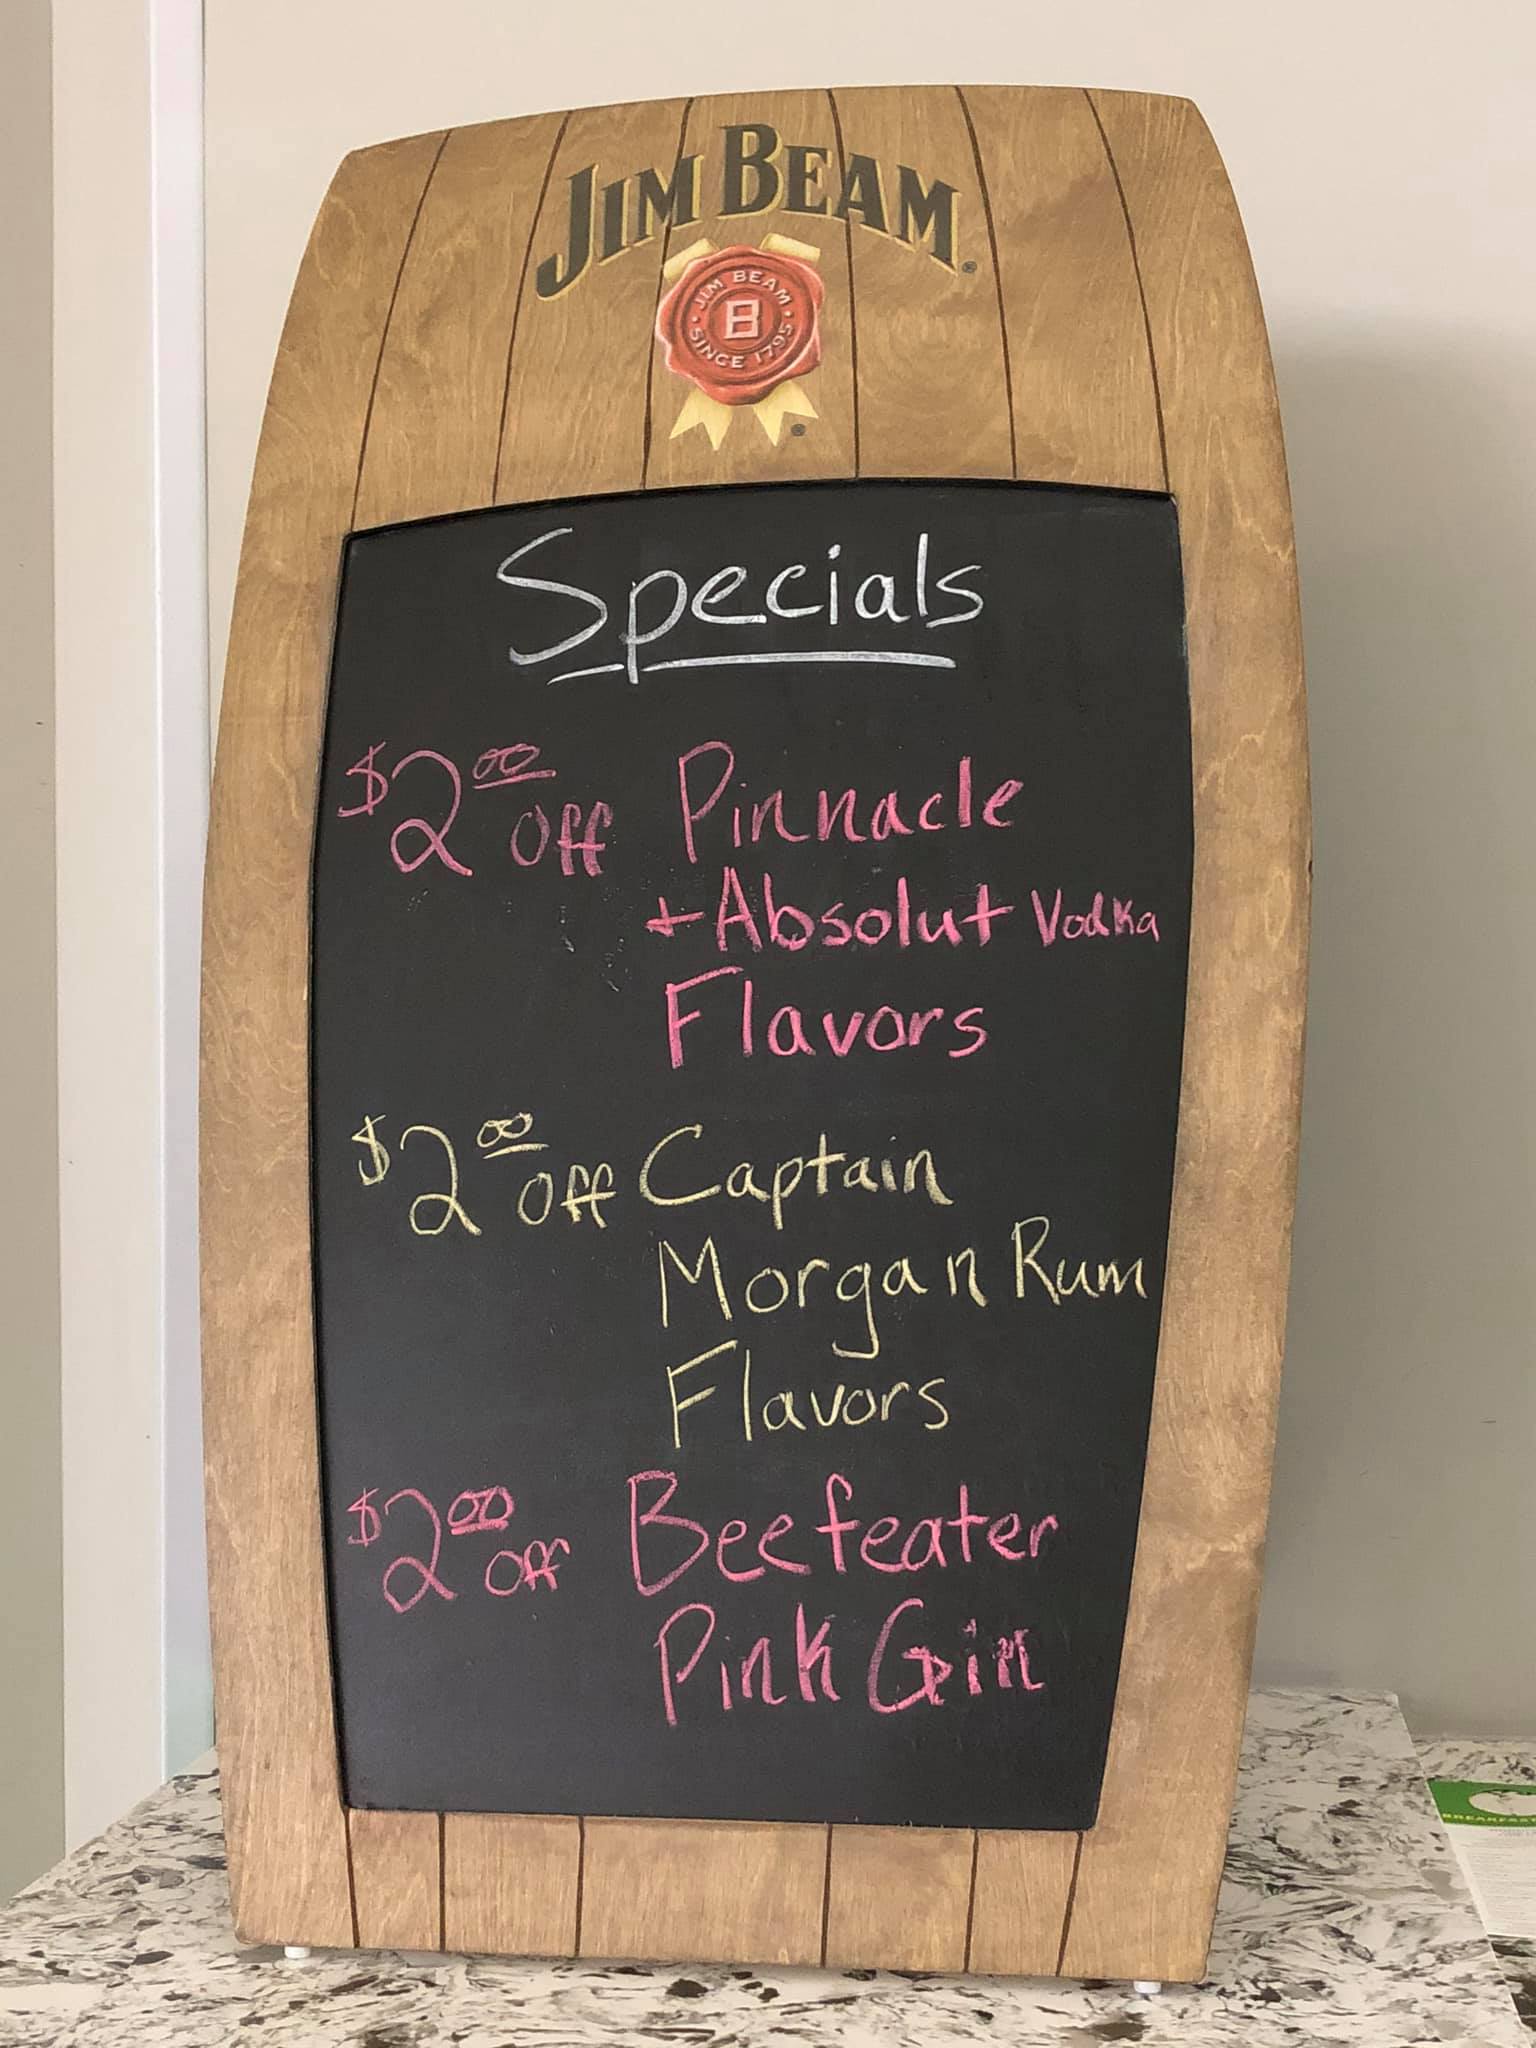 JIM BEAM®
JIM BEAM
B
SINCE 1795
®
Specials
$2.00 off Pinnacle
+ Absolut Vodka
Flavors
$2.00 off Captain
Morgan Rum
Flavors
$2.00 off Beefeater
Pink Gin
BREAKFAST